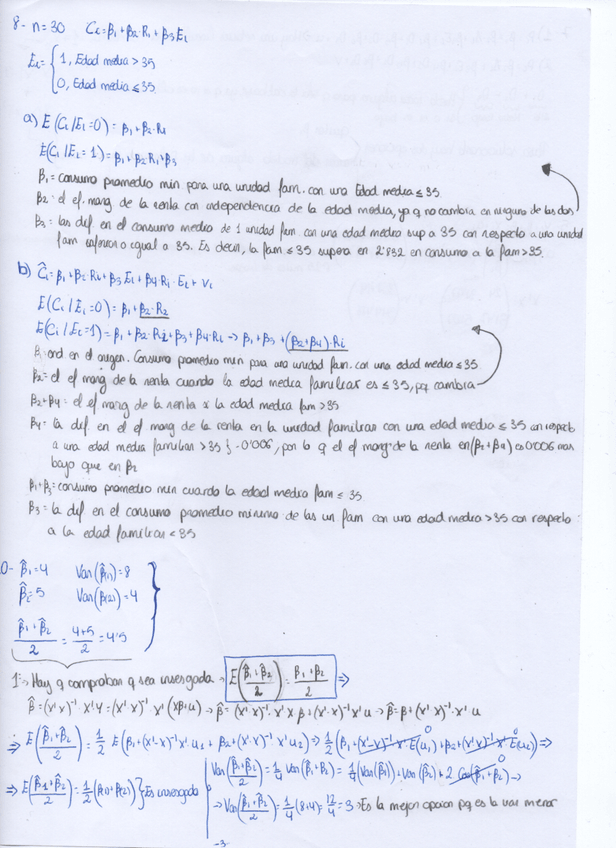 8- n=30 Ci=β1+β2·Ri+β3Ei
Ei={ 1, Edad media > 35
0, Edad media ≤ 35
a) E(Ci/Ei=0)=β1+β2·Ri
E(Ci/Ei=1)=β1+β2·Ri+β3
β1= consumo promedio min. para una unidad fam. con una Edad media ≤ 35.
β2= el ef. marg de la renta con independencia de la edad media, ya q no cambia en ninguno de las dos
β3= las dif. en el consumo medio de 1 unidad fam con una edad medio sup a 35 con respecto a una unidad
fam inferior o igual a 35. Es decir, la fam ≤ 35 supera en 2'832 en consumo a la fam > 35.
b) Ĉi= β1+β2·Ri+β3Ei+β4·Ri·Ei+Vi
E(Ci/Ei=0)= β1+β2·R2
E(Ci/Ei=1)= β1+β2·Ri+β3+β4·Ri → β1+β3+(β2+β4)·Ri
ord en el origen. Consumo promedio min para una unidad fam. con una edad media ≤ 35
β2= el ef marg de la renta cuando la edad media familiar es ≤ 35, pq cambia
β2+β4= el ef marg de la renta x la edad media fam > 35
β4= la dif. en el ef marg de la renta en la unidad familiar con una edad medio ≤ 35 con respecto
a una edad media familiar > 35 } -0'006, por lo q el ef marg de la renta en (β2+β4) es 0'006 mas
bajo que en β2
β1+β3= consumo promedio min cuando la edad media fam ≤ 35
β3= la dif en el consumo promedio minimo de las un fam con una edad media > 35 con respecto
a la edad familiar < 35
0- β̂1=4 Var(β̂(1))=8
β̂2=5 Var(β(2))=4
(β̂1+β̂2)/2 = (4+5)/2 = 4'5
1º → Hay q comprobar q sea insesgada → E((β̂1+β̂2)/2) = (β1+β2)/2 ⇒
β̂=(x'x)⁻¹·x'Y=(x'x)⁻¹·x'(Xβ+u) → β̂=(x'x)⁻¹·x'xβ+(x'x)⁻¹x'u → β̂=β+(x'x)⁻¹·x'u
⇒ E((β̂1+β̂2)/2) = 1/2 E(β1+(x'x)⁻¹x'u1+β2+(x'x)⁻¹x'u2) ⇒ 1/2(β1+(x'x)⁻¹x'E(u1) 0+β2+(x'x)⁻¹x'E(u2) 0) ⇒
⇒ E((β̂1+β̂2)/2) = 1/2(β(1)+β(2)) } Es insesgada
Var((β̂1+β̂2)/2) = 1/4 Var(β̂1+β̂2) = 1/4(Var(β̂1)+Var(β̂2)+2 Cov(β̂1,β̂2) 0 →
→ Var((β̂1+β̂2)/2) = 1/4(8+4) = 12/4 = 3 → Es la mejor opcion pq es la var menor
-3